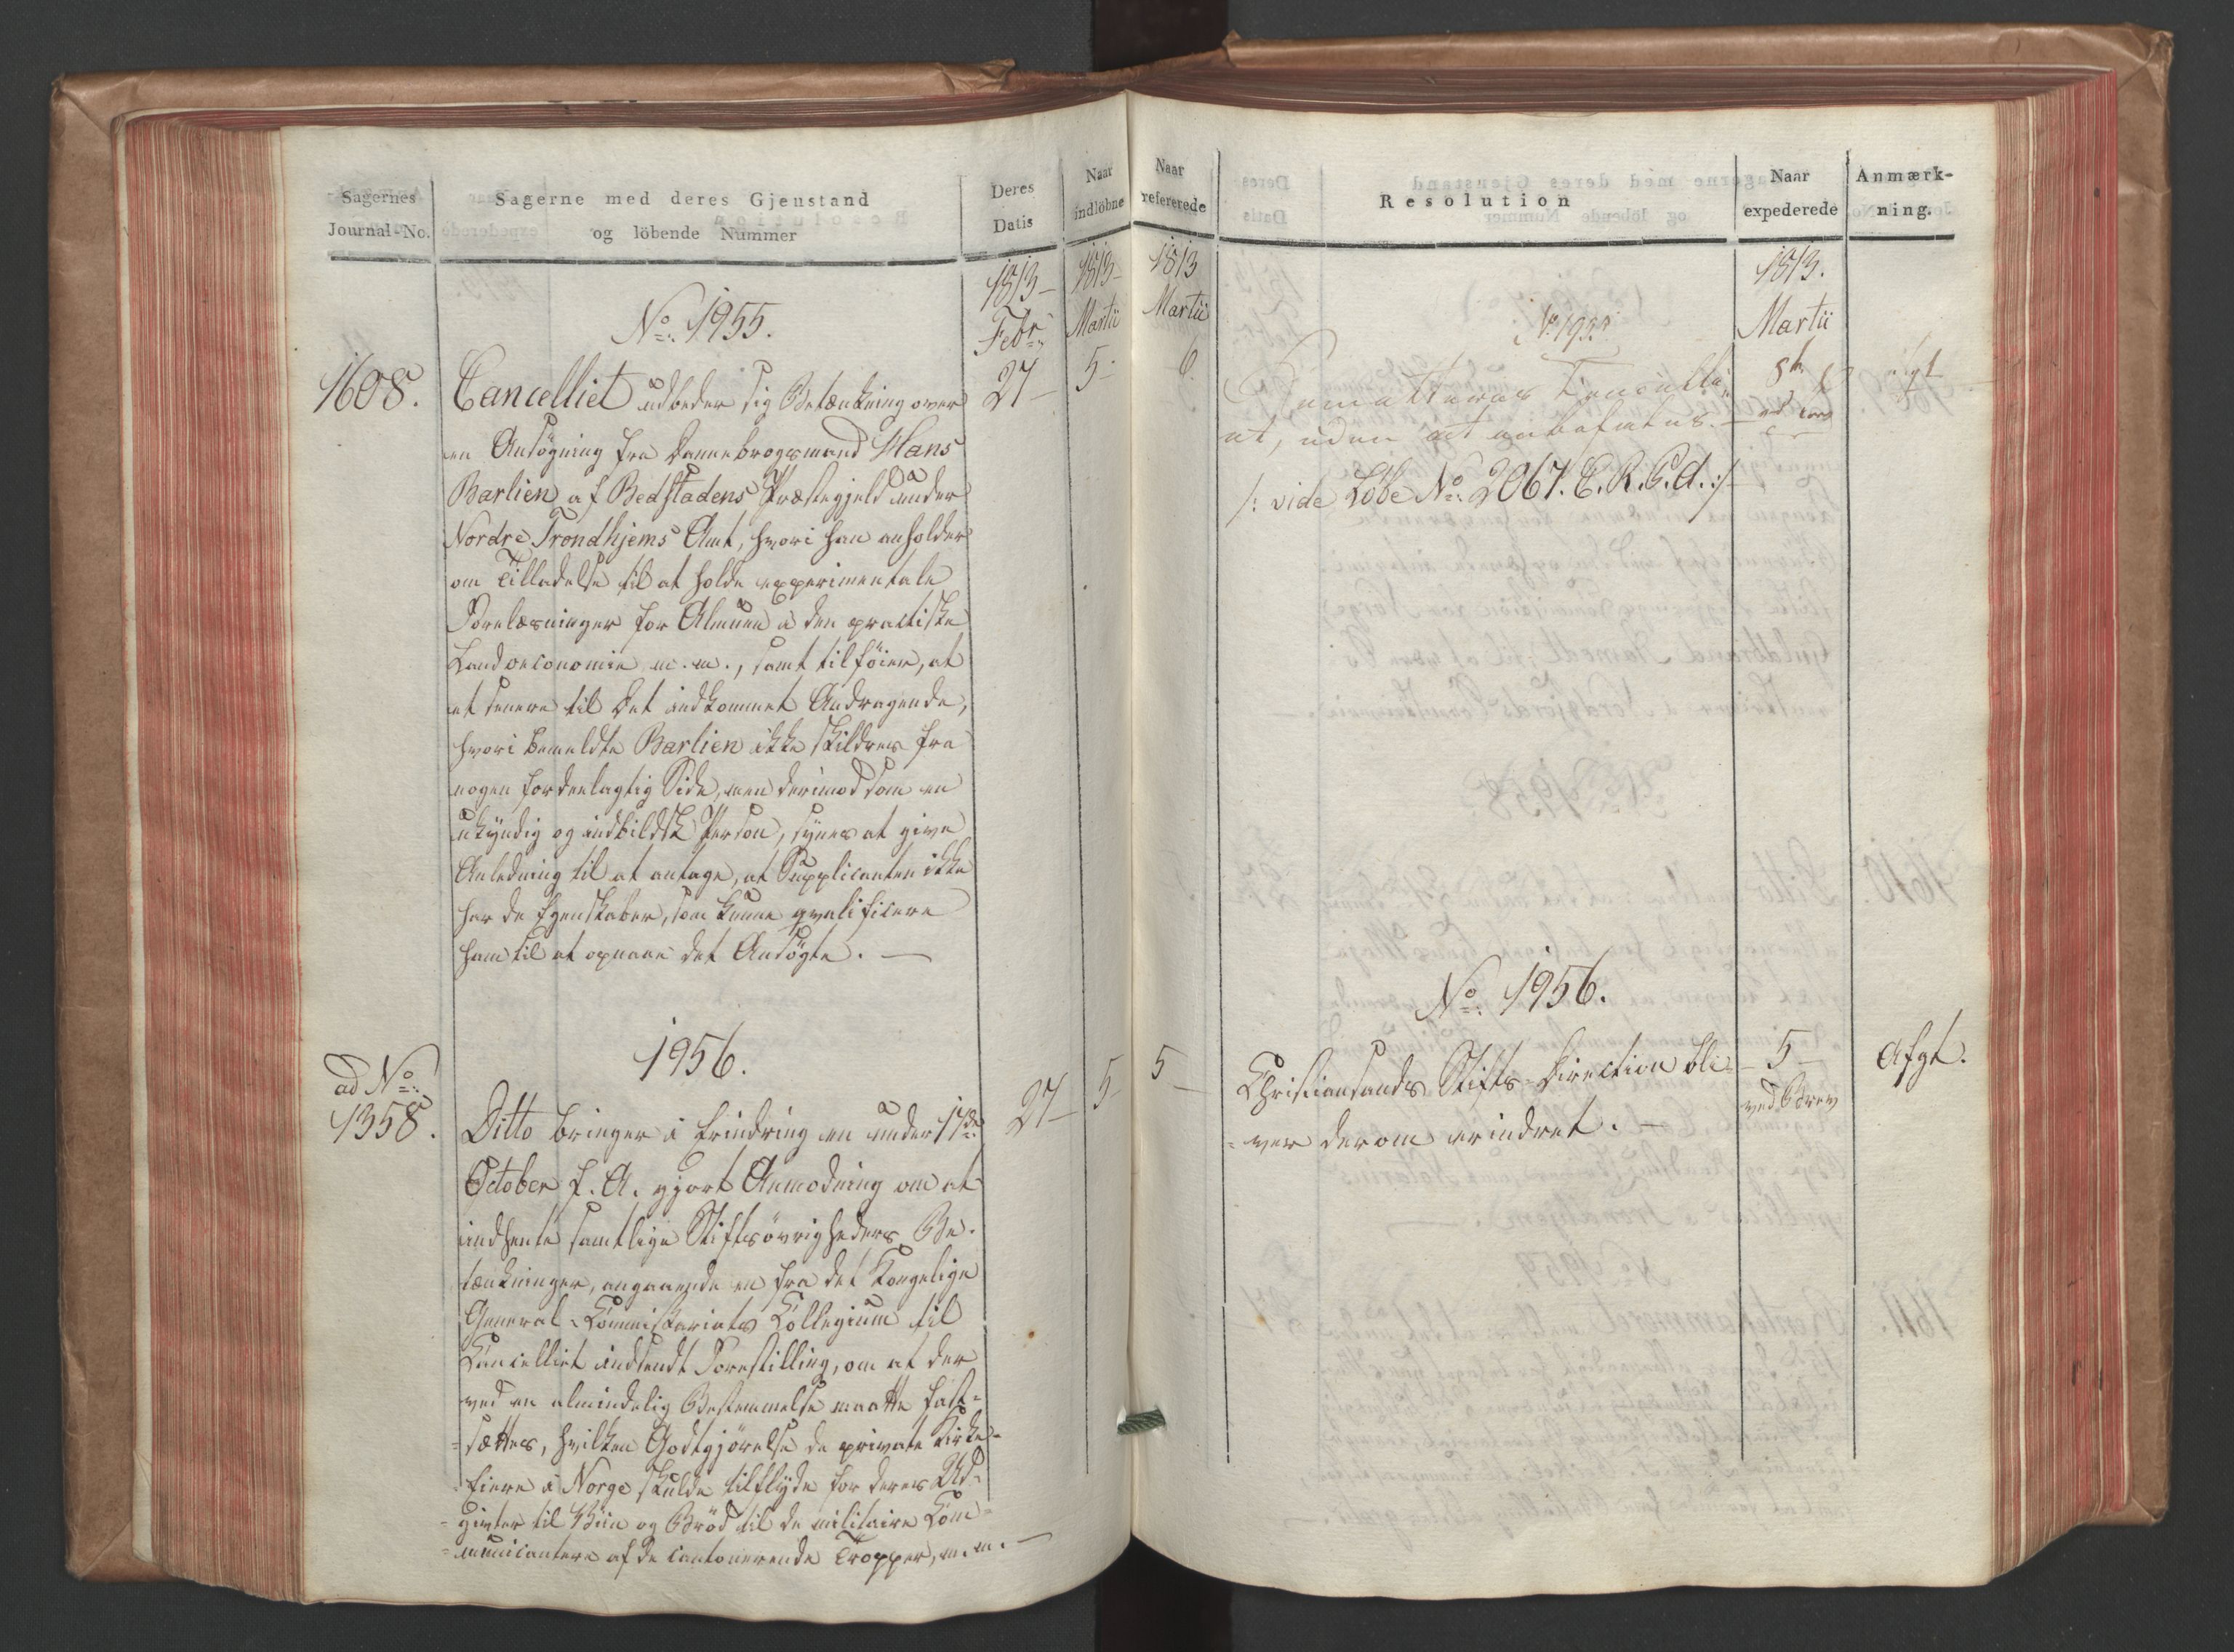 Sagernes
Journal-No.
Sagerne med deres Gjenstand
og löbende Nummer
Deres
Datis
Naar
indlöbne
1813-
Febr:
1813-
Martii
No: 1955.
1608.
27-
5-
Cancelliet udbeder sig Betænkning over
en Ansögning fra Dannebrogsmand Hans
Barlien af Bedstadens Præstegjeld under
Nordre Trondhjems Amt, hvori han anholder
om Tilladelse til at holde experimentale
Forelæsninger for Almuen i den practiske
Landoeconomie m.m., samt tilföier, at
et senere til Det indkommet Andragende,
hvori bemeldte Barlien ikke skildres fra
nogen fordeelagtig Side, men derimod som en
ukyndig og indbildsk Person, synes at give
Anledning til at antage, at Supplicanten ikke
har de Egenskaber, som kunne qvalificere
ham til at opnaae det Ansögte. —
1956.
ad No:
1358.
27-
5-
Ditto bringer i Erindring en under 17de
October f. A. gjort Anmodning om at
indhente samtlige Stiftsövrigheders Be-
tænkninger, angaaende en fra det Kongelige
General-Commissariats Collegium til
Cancelliet indsendt Forestilling, om at der
ved en almindelig Bestemmelse maatte fast-
=sættes, hvilken Godtgjörelse de private Kirke-
Eiere i Norge skulde tilflyde for deres Ud-
=givter til Viin og Bröd til de militaire Com-
=municantere af de cantonerende Tropper, m.m. —
Naar
refererede
Resolution
Naar
expederede
Anmærk-
ning.
1813
Martii
1813.
Martii
No 1955
6.
8de
afgt
at, uden at anbefales.
/: vide Löbe No: 2067. E. R. C. A. :/
No: 1956.
5-
Christiansands Stifts-Direction bli-
=ver derom erindret. —
5-
ved Brev
Afgt.